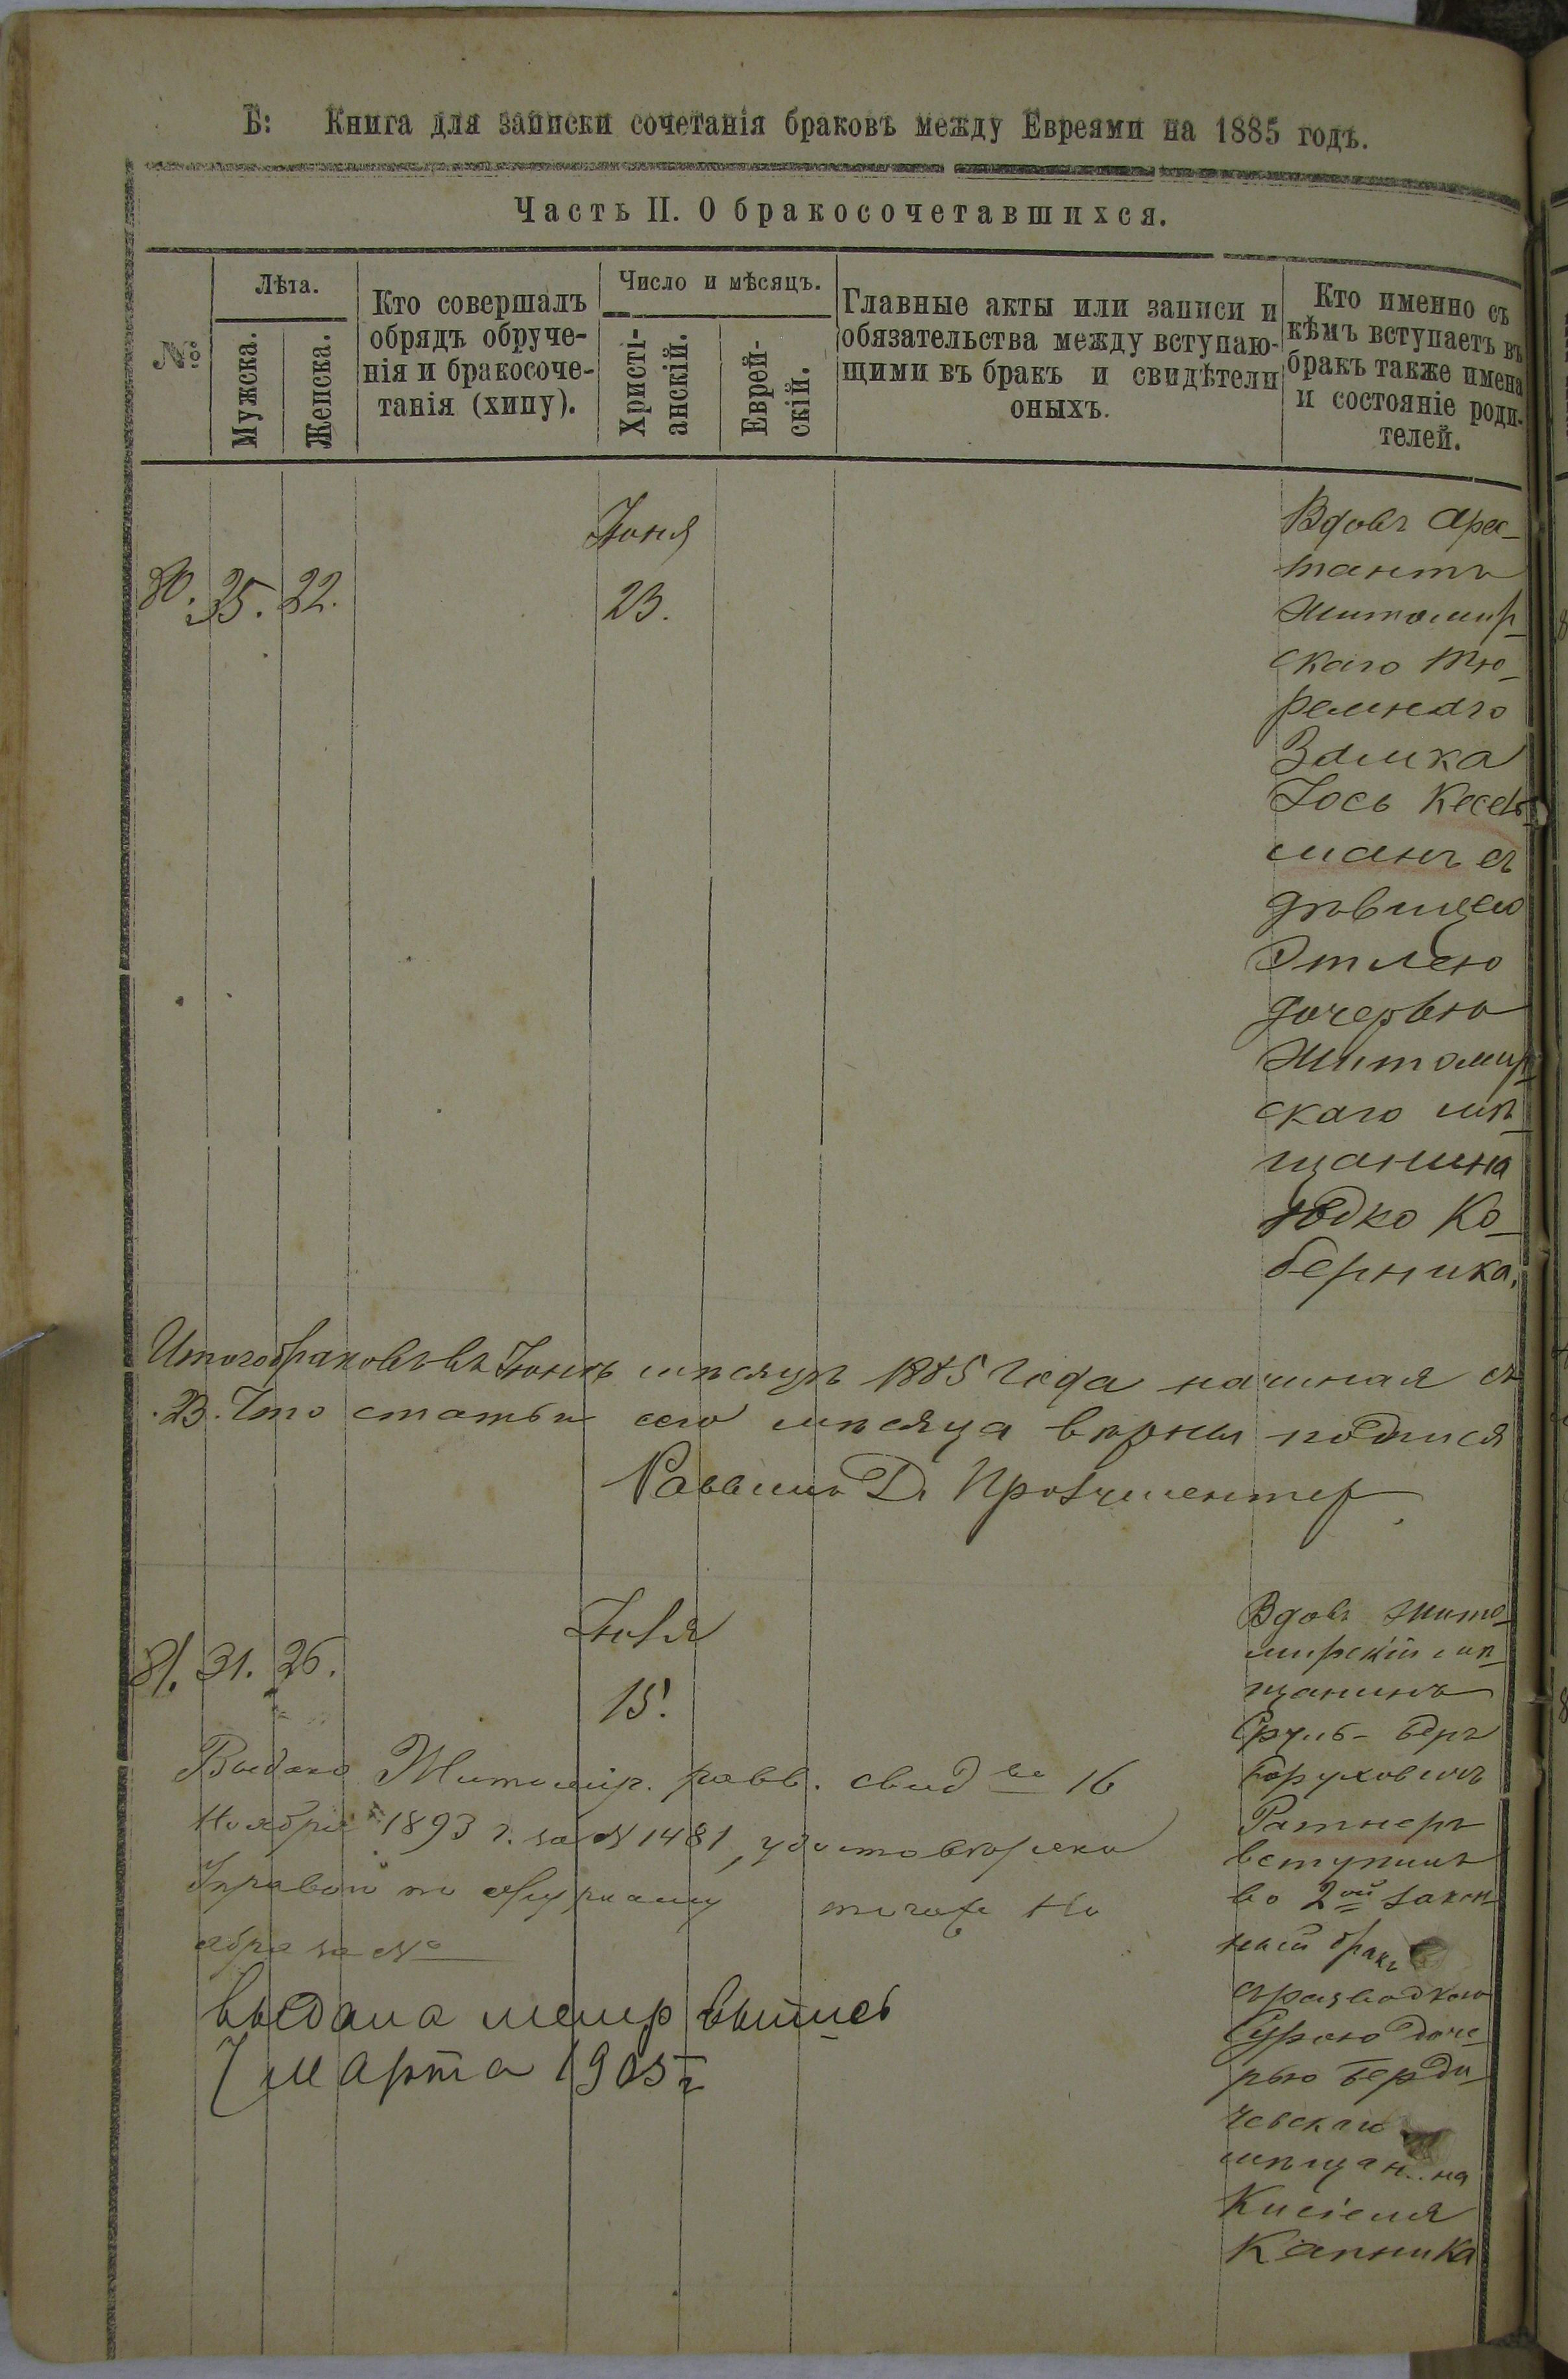 Б: Книга для записки сочетанія браковъ между Евреями на 1885 годъ.
Часть II. О бракосочетавшихся.
№
Лѣта.
Мужска.
Женска.
Кто совершалъ
обрядъ обруче-
нія и бракосоче-
танія (хипу).
Число и мѣсяцъ.
Христі-
анскій.
Еврей-
скій.
Главные акты или записи и
обязательства между вступаю-
щими въ бракъ и свидѣтели
оныхъ.
Кто именно съ
кѣмъ вступаетъ въ
бракъ также имена
и состояніе роди-
телей.
80. 35. 22.
Іюня
23.
Вдовъ Арес-
тантъ
Житомир-
скаго тю-
ремнаго
Замка
Іось Кесель-
манъ съ
дѣвицею
Этлею
дочерью
Житомир-
скаго мѣ-
щанина
Юдко Ко-
берника.
Итого браковъ въ Іюнѣ мѣсяцѣ 1885 года начиная съ
23. Что статьи сего мѣсяца вѣрны подпися
Раввинъ Д.
81. 31. 26.
Іюля
15.
Вдовъ Жито-
мирскій мѣ-
щанинъ
Сруль-Беръ
Боруховичъ
Ратнеръ
вступилъ
во 2ой закон-
ный бракъ
съ разводкою
Сурою доче-
рью Берди-
чевскаго
мѣщанина
Кисіеля
Капника
Выдано Житомир. равв. свид во 16
Ноября 1893 г. за № 1481, удостовѣрено
Управой по тогоже Но
ября за №
выдана метр выпись
7 марта 1905 г